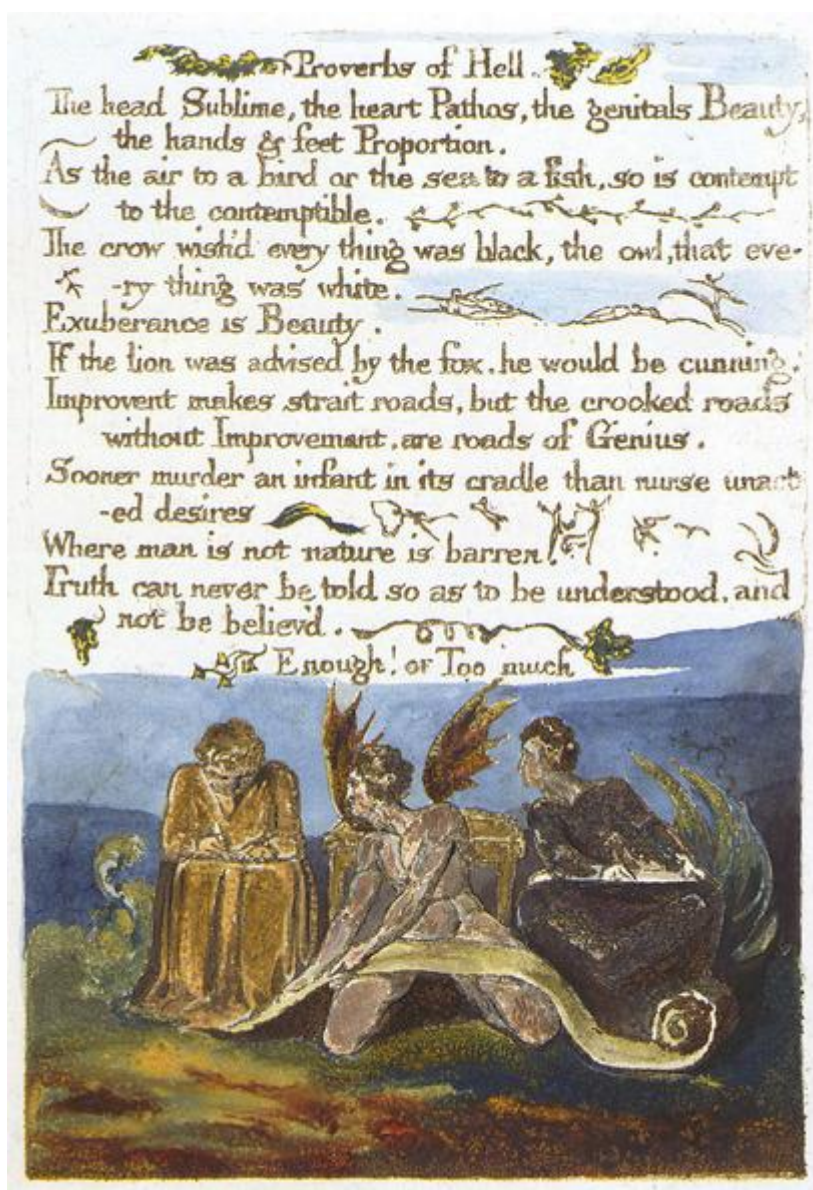 Proverbs of Hell.
The head Sublime, the heart Pathos, the genitals Beauty,
the hands & feet Proportion.
As the air to a bird or the sea to a fish, so is contempt
to the contemptible.
The crow wish'd every thing was black, the owl, that eve-
-ry thing was white.
Exuberance is Beauty.
If the lion was advised by the fox. he would be cunning.
Improvent makes strait roads, but the crooked roads
without Improvement, are roads of Genius.
Sooner murder an infant in its cradle than nurse unact-
-ed desires
Where man is not nature is barren.
Truth can never be told so as to be understood, and
not be believ'd.
Enough! or Too much